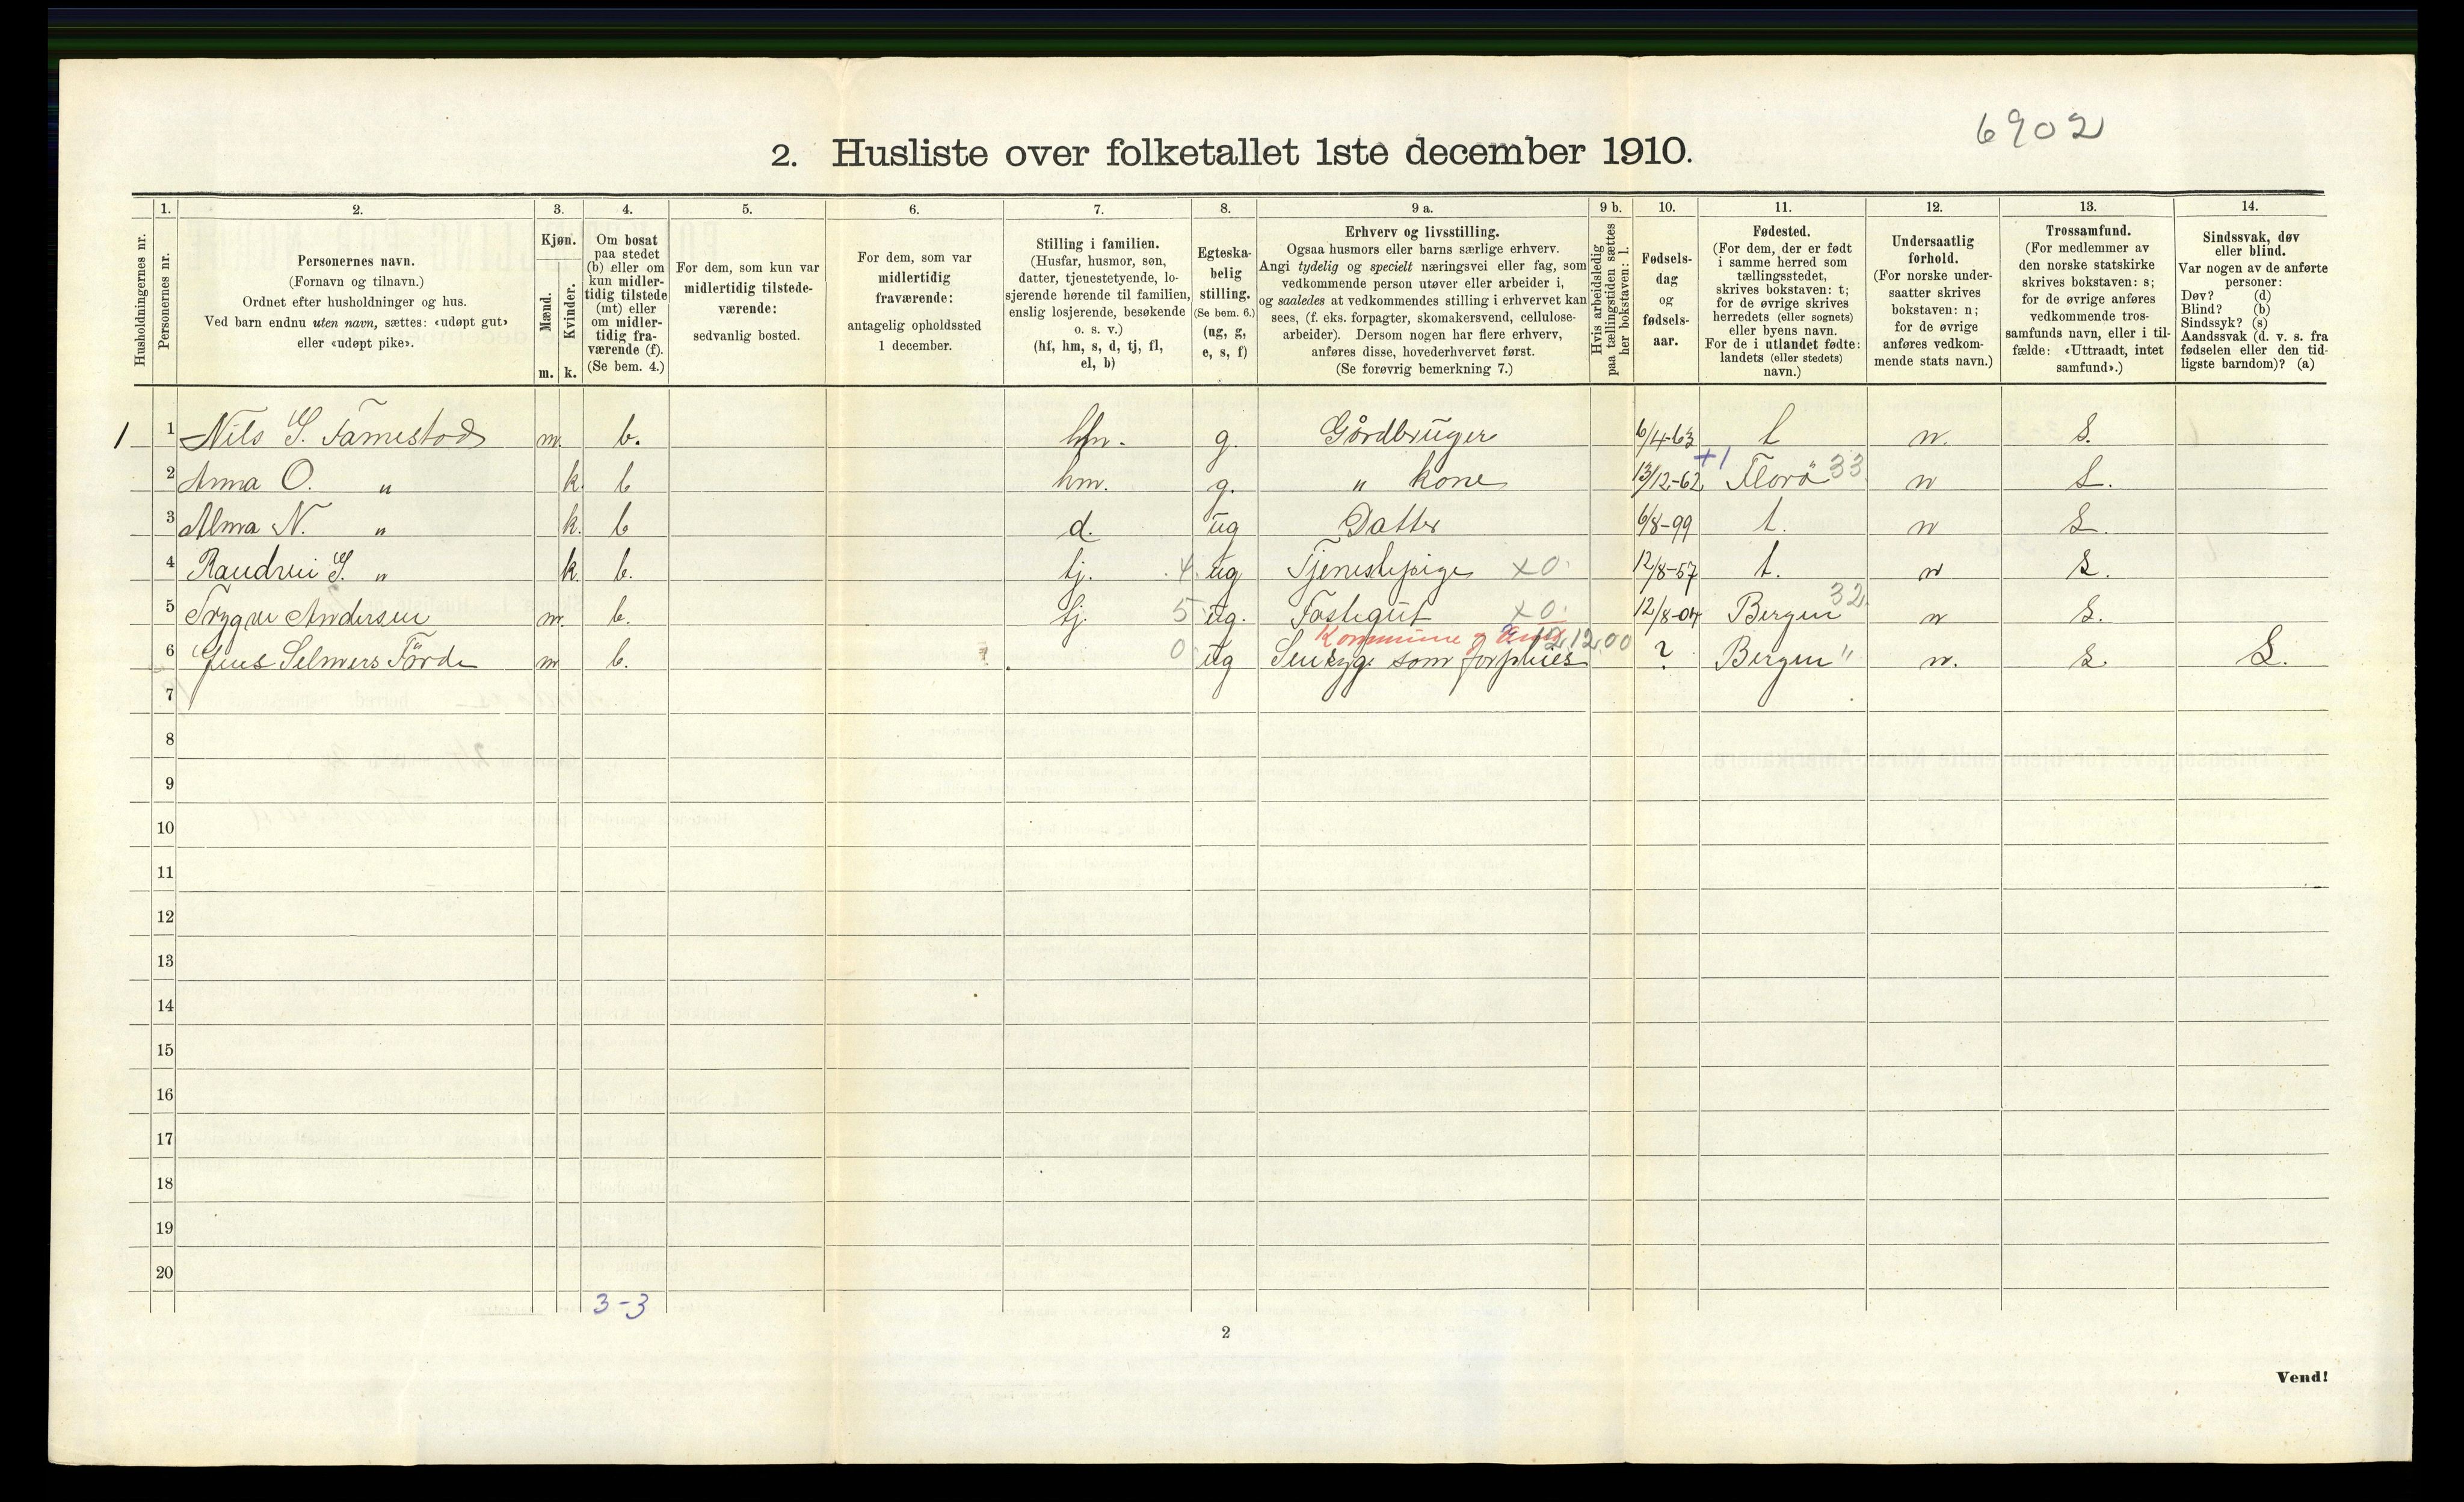 6902
2. Husliste over folketallet 1ste december 1910.
Husholdningernes nr.
1. Personernes nr.
2. Personernes navn.
(Fornavn og tilnavn.)
Ordnet efter husholdninger og hus.
Ved barn endnu uten navn, sættes: «udøpt gut»
eller «udøpt pike».
3. Kjøn.
Mænd. m.
Kvinder. k.
4. Om bosat
paa stedet
(b) eller om
kun midler-
tidig tilstede
(mt) eller
om midler-
tidig fra-
værende (f).
(Se bem. 4.)
5. For dem, som kun var
midlertidig tilstede-
værende:
sedvanlig bosted.
6. For dem, som var
midlertidig
fraværende:
antagelig opholdssted
1 december.
7. Stilling i familien.
(Husfar, husmor, søn,
datter, tjenestetyende, lo-
sjerende hørende til familien,
enslig losjerende, besøkende
o. s. v.)
(hf, hm, s, d, tj, fl,
el, b)
8. Egteska-
belig
stilling.
(Se bem. 6.)
(ug, g,
e, s, f)
9 a. Erhverv og livsstilling.
Ogsaa husmors eller barns særlige erhverv.
Angi tydelig og specielt næringsvei eller fag, som
vedkommende person utøver eller arbeider i,
og saaledes at vedkommendes stilling i erhvervet kan
sees, (f. eks. forpagter, skomakersvend, cellulose-
arbeider). Dersom nogen har flere erhverv,
anføres disse, hovederhvervet først.
(Se forøvrig bemerkning 7.)
9 b. Hvis arbeidsledig
paa tællingstiden sættes
her bokstaven: l.
10. Fødsels-
dag
og
fødsels-
aar.
11. Fødested.
(For dem, der er født
i samme herred som
tællingsstedet,
skrives bokstaven: t;
for de øvrige skrives
herredets (eller sognets)
eller byens navn.
For de i utlandet fødte:
landets (eller stedets)
navn.)
12. Undersaatlig
forhold.
(For norske under-
saatter skrives
bokstaven: n;
for de øvrige
anføres vedkom-
mende stats navn.)
13. Trossamfund.
(For medlemmer av
den norske statskirke
skrives bokstaven: s;
for de øvrige anføres
vedkommende tros-
samfunds navn, eller i til-
fælde: «Uttraadt, intet
samfund».)
14. Sindssvak, døv
eller blind.
Var nogen av de anførte
personer:
Døv? (d)
Blind? (b)
Sindssyk? (s)
Aandssvak (d. v. s. fra
fødselen eller den tid-
ligste barndom)? (a)
1 1 Nils S. Tamestod m. b. g. Gårdbruger 6/4-63 t n. S.
2 Anna O. " k. b hm. g. " kone 13/12-62 +1 Florö 33 n S.
3 Alma N. " k. b d. ug Datter 6/8-99 t. n S
4 S. " k. b. tj. .4. ug x0 12/8-57 t. n S.
5 Trygve Andersen m. b. tj. 5 ug. x0 12/8-04 Bergen 32 n S.
Kommune 12,12,00
6 Jens Selmers Förde m b. 0 ug som ? Bergen " n. S. S.
7
8
9
10
11
12
13
14
15
16
17
18
19
20
3-3
2
Vend!